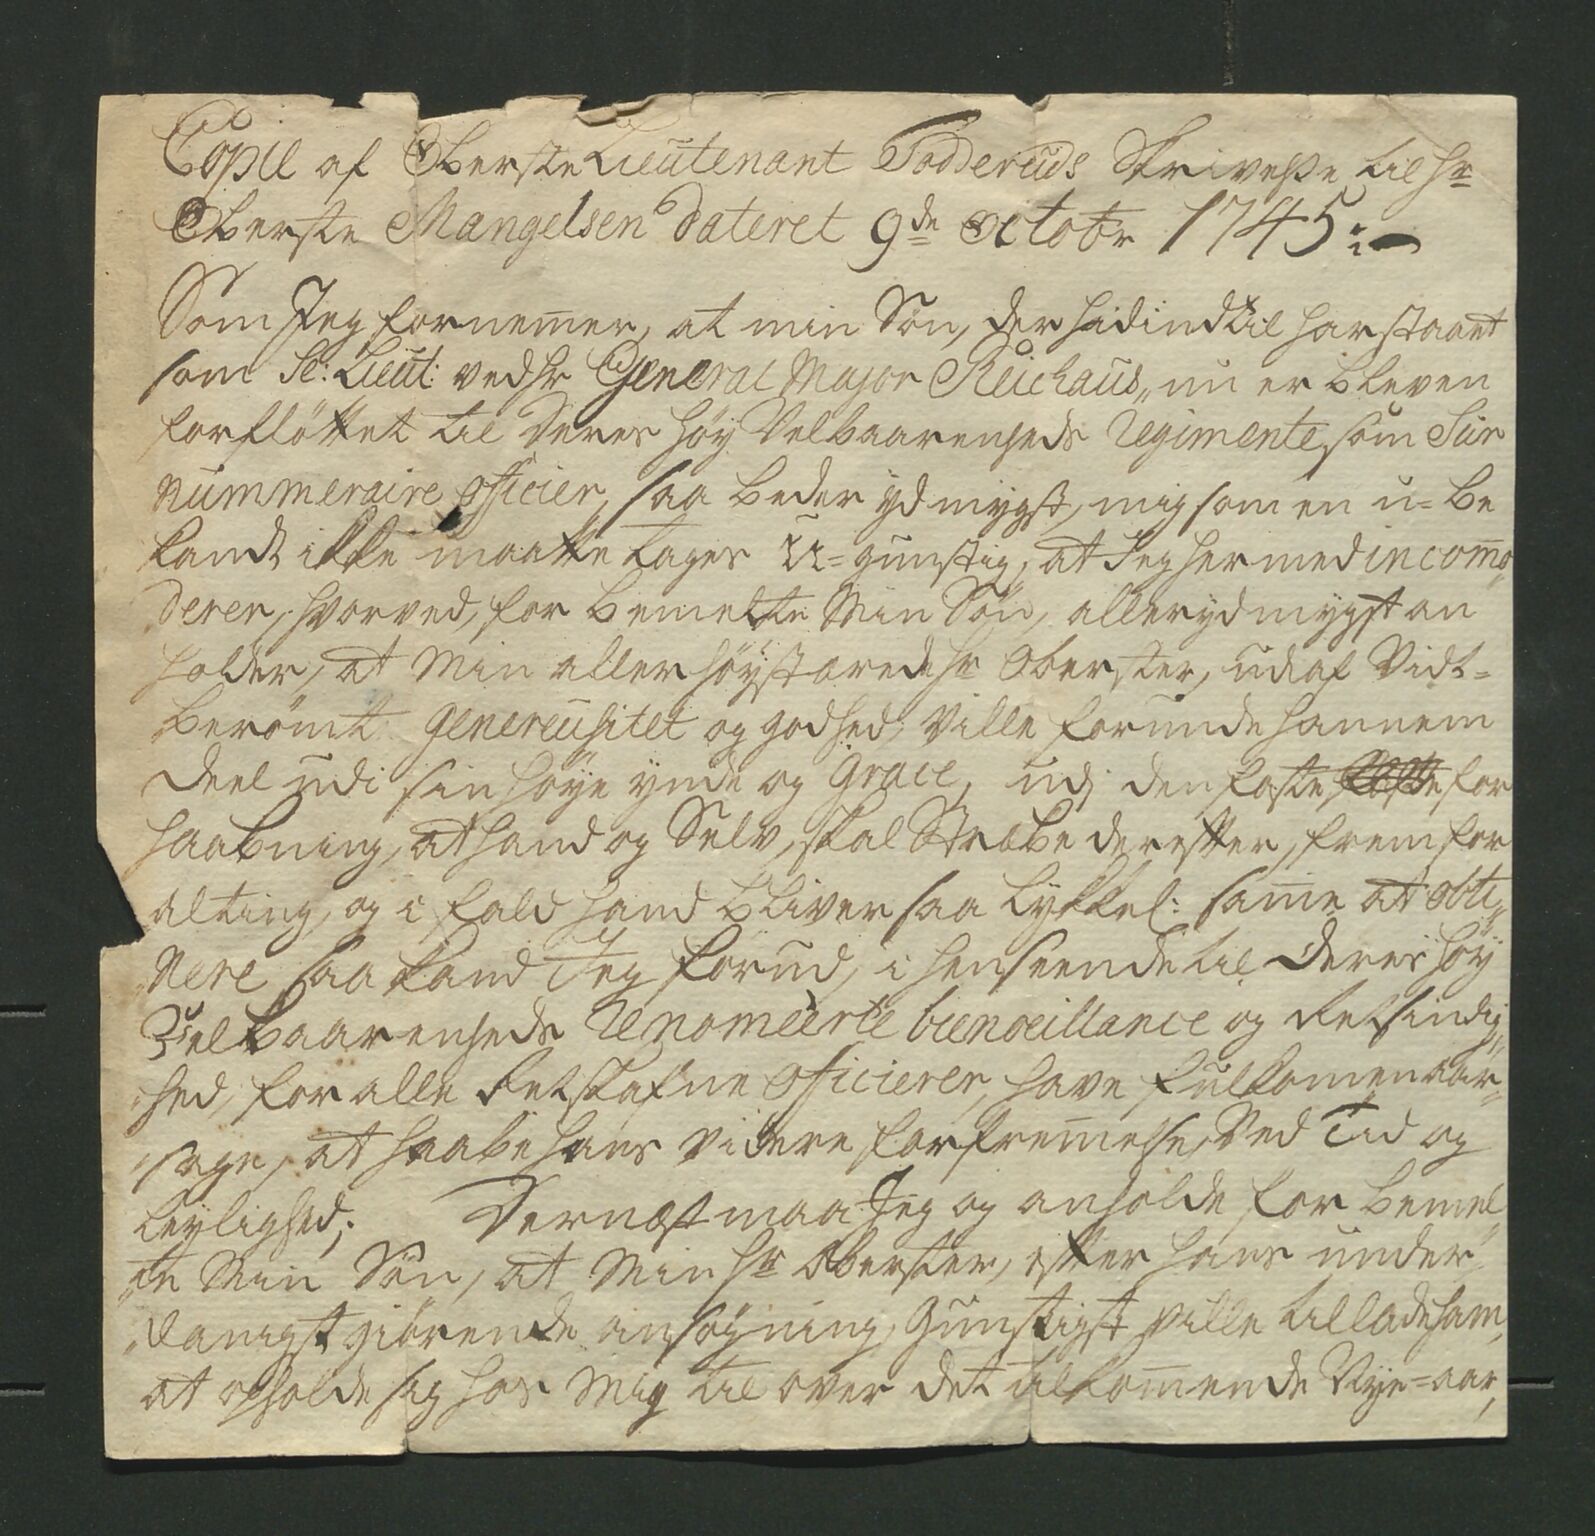 Copie af Oberste Lieutenant Todderuds Skrivelse til Hr
Oberste Mangelsen dateret 9de Octobr 1745:
Som Jeg fornemer, at min Søn, der hidindtil har staaet
som Se: Lieut: ved Hr General Major Reichaus, nu er bleven
forfløttet til Deres Høy Velbaarenheds Regimente, som Sur
nummeraire officier, saa beder ydmygst, mig som en u=be
kandt ikke maatte tages U=gunstig, at Jeg hermed incomo
derer, hvorved, for bemelte Min Søn, allerydmygst an
holder, at Min allerhøystærede Hr Oberster, ud af Vidt=
berømt genereusitet og godhed, Ville forunde hannem
deel udi sin høye ynde og Grace, udi den faste for
haabning, at hand og Selv, skal Stræbe derefter, frem for
alting, og i fald hand bliver saa lykkel: same at obti
nere, saa kand Jeg forud, i henseende til Deres Høy
Velbaarenheds Renomeerte bienveillance og Retsindig
hed, for alle Retskafne officierer, have fulkomen aar=
sage, at haabe hans videre forfremelse, Ved Tid og
leylighed; Dernæst maa Jeg og anholde for bemel
te Min Søn, at Min Hr Oberster, efter hans under
danigst giørende ansøgning, Gunstigst Ville tillade ham,
at opholde sig hos Mig til over det tilkomende Nye=aar,